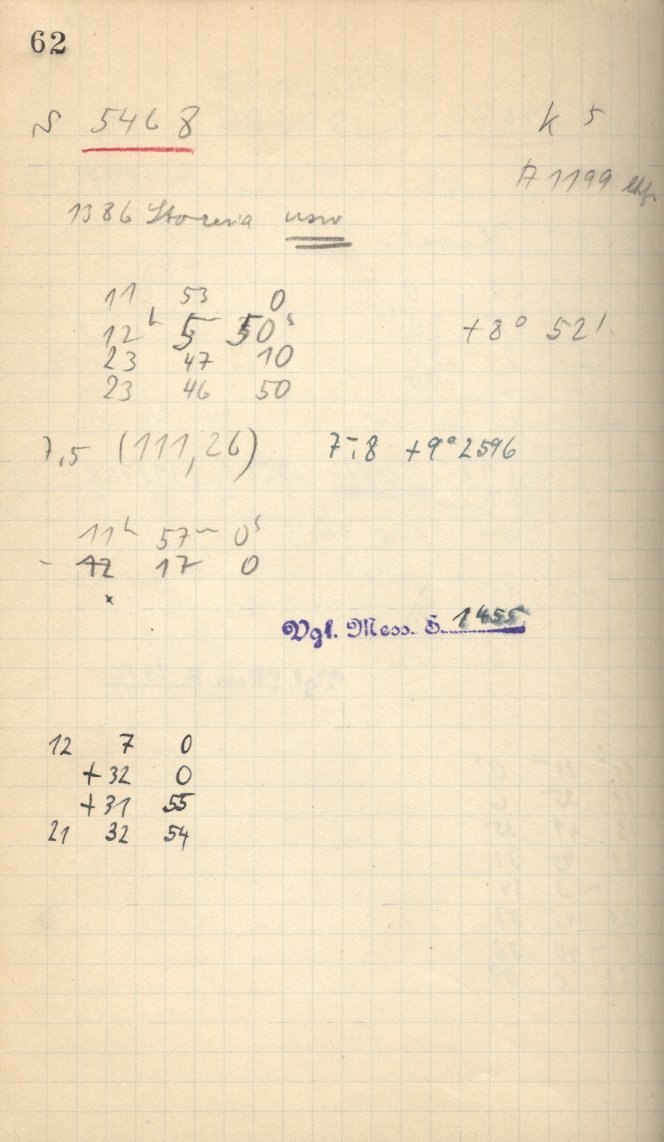 62
5468 K 5
A 1199
1386 Storeria usw
11 53 0
12ʰ 5 50ˢ +8° 52'
23 47 10
23 46 50
7,5 (111,26) 7-,8 +9°2596
11ʰ 57ᵐ 0ˢ
- 12 17 0
Vgl. Mess. S. 1455
12 7 0
+32 0
+31 55
21 32 54